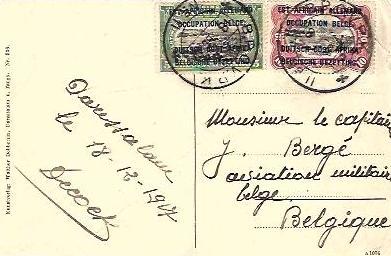 EST AFRICAIN ALLEMAND
OCCUPATION BELGE
DUITSCH OOST AFRIKA
BELGISCHE BEZETTING
EST AFRICAIN ALLEMAND
OCCUPATION BELGE
DUITSCH OOST AFRIKA
BELGISCHE BEZETTING
Daressalam
le 18-12-1917
Decock
Monsieur le capitaine
J. Bergé
aviation militaire
belge
Belgique
Kunstverlag Walther Dobbertin, Daressalam
No.